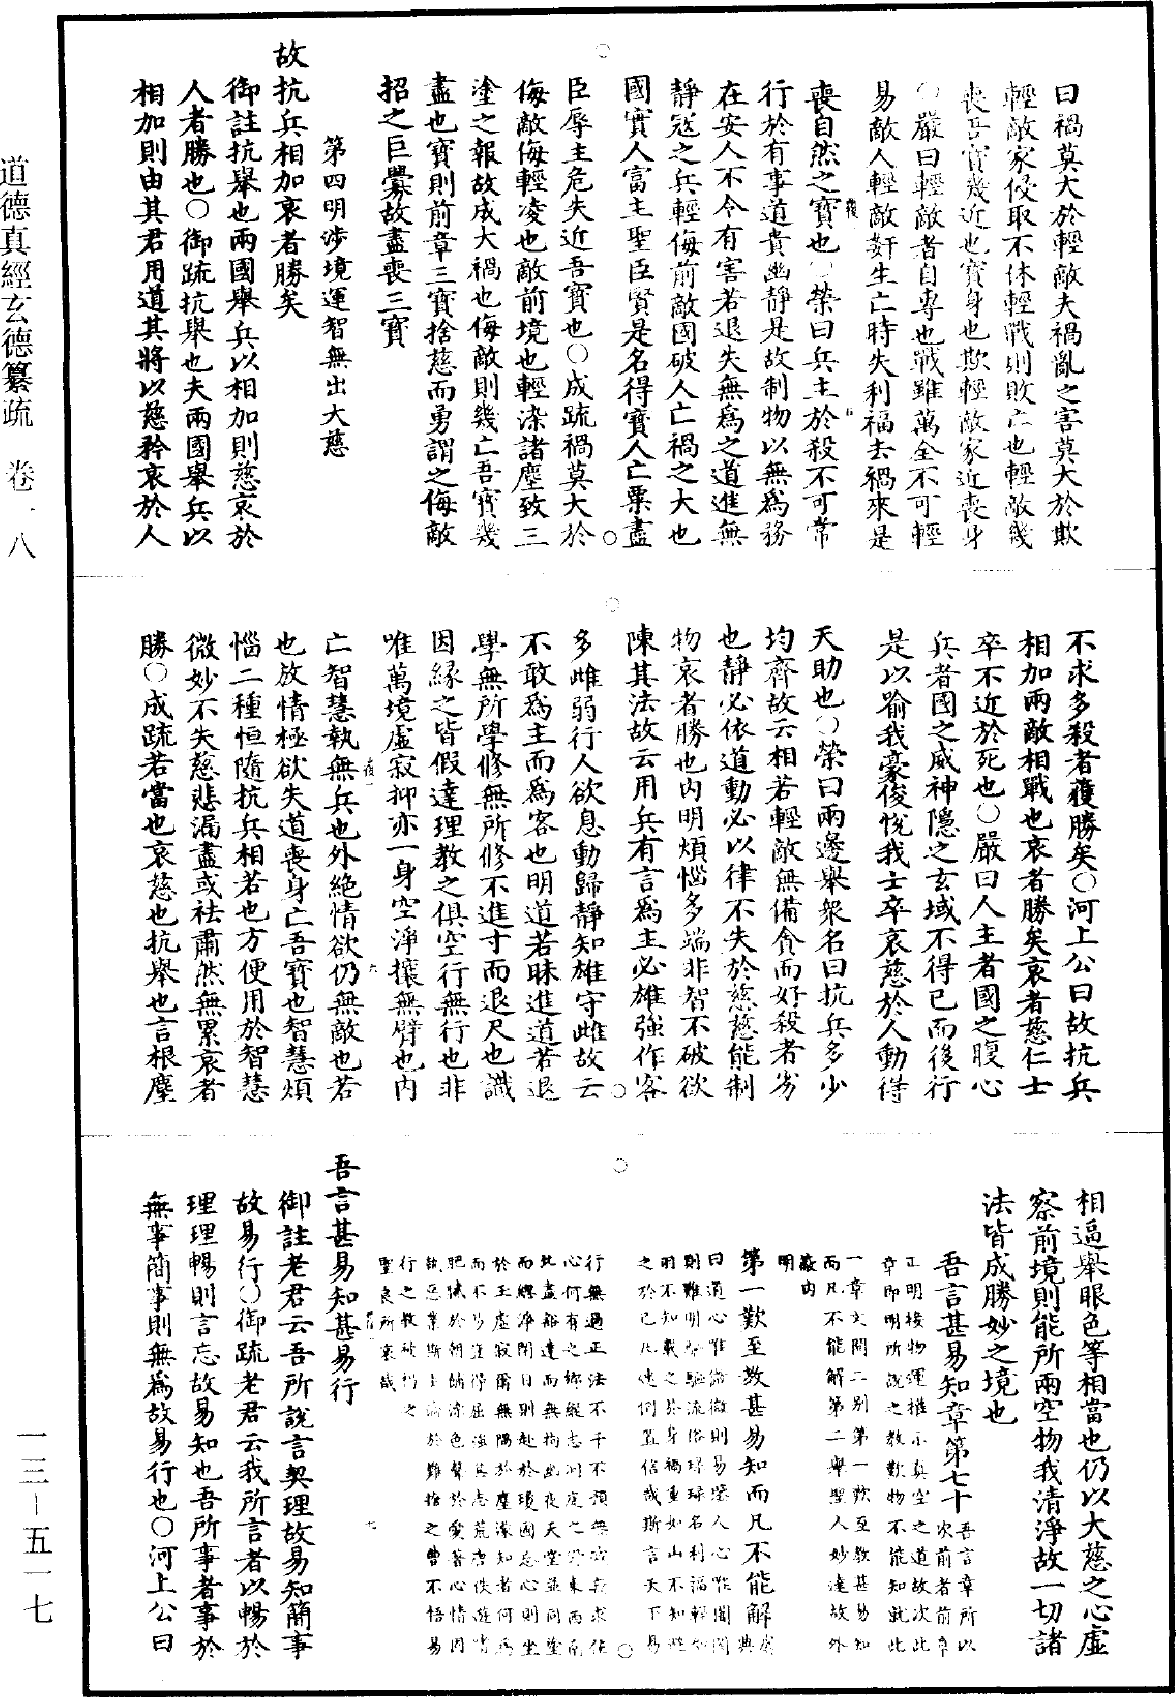 曰禍莫大於輕敵夫禍亂之害莫大於欺
輕敵家侵取不休輕戰則敗亡也輕敵幾
喪吾寶幾近也寶身也欺輕敵家近喪身
○嚴曰輕敵者自專也戰雖萬全不可輕
易敵人輕敵姧生亡時失利福去禍來是
喪自然之寶也○榮曰兵主於殺不可常
行於有事道貴幽靜是故制物以無為務
在安人不令有害若退失無為之道進無
靜寇之兵輕侮前敵國破人亡禍之大也
國實人富主聖臣賢是名得寶人亡粟盡
臣辱主危失近吾寶也○成疏禍莫大於
侮敵侮輕凌也敵前境也輕染諸塵致三
塗之報故成大禍也侮敵則幾亡吾寶幾
盡也寶則前章三寶捨慈而勇謂之侮敵
招之巨釁故盡喪三寶
第四明涉境運智無出大慈
故抗兵相加哀者勝矣
御註抗舉也兩國舉兵以相加則慈哀於
人者勝也○御疏抗舉也夫兩國舉兵以
相加則由其君用道其將以慈矜哀於人
不求多殺者獲勝矣○河上公曰故抗兵
相加兩敵相戰也哀者勝矣哀者慈仁士
卒不近於死也○嚴曰人主者國之腹心
兵者國之威神隱之玄域不得已而後行
是以喻我豪俊悅我士卒哀慈於人動得
天助也○榮曰兩邊舉衆名曰抗兵多少
均齊故云相若輕敵無備貪而好殺者劣
也靜必依道動必以律不失於慈慈能制
物哀者勝也內明煩惱多端非智不破欲
陳其法故云用兵有言為主必雄強作客
多雌弱行人欲息動歸靜知雄守雌故云
不敢為主而為客也明道若昧進道若退
學無所學修無所修不進寸而退尺也識
因緣之皆假達理教之俱空行無行也非
唯萬境虛寂抑亦一身空淨攘無臂也內
亡智慧執無兵也外絕情欲仍無敵也若
也放情極欲失道喪身亡吾寶也智慧煩
惱二種恒隨抗兵相若也方便用於智慧
微妙不失慈悲漏盡或祛肅然無累哀者
勝○成疏若當也哀慈也抗舉也言根塵
相逼舉眼色等相當也仍以大慈之心虛
察前境則能所兩空物我清淨故一切諸
法皆成勝妙之境也
吾言甚易知章第七十
吾言章所以次前者前章
正明接物運權示真空之道故次此
章即明所說之教歎物不能知就此
一章文開二別第一歎至教甚易知
而凡不能解第二舉聖人妙達故外
蔽內
明
第一歎至教甚易知而凡不能解
吾言甚易知甚易行
御註老君云吾所說言契理故易知簡事
故易行○御疏老君云我所言者以暢於
理理暢則言忘故易知也吾所事者事於
無事簡事則無為故易行也○河上公曰
道德真經玄德纂疏　卷一八
一三－五一七